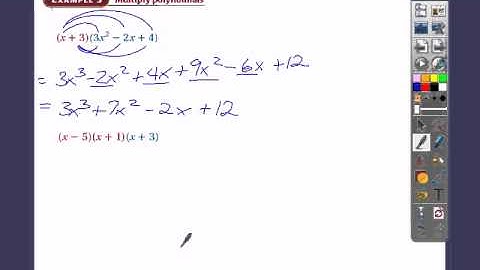 EXAMPLE 3 Multiply polynomials
(x + 3)(3x² − 2x + 4)
= 3x³ - 2x² + 4x + 9x² - 6x + 12
= 3x³ + 7x² - 2x + 12
(x − 5)(x + 1)(x + 3)